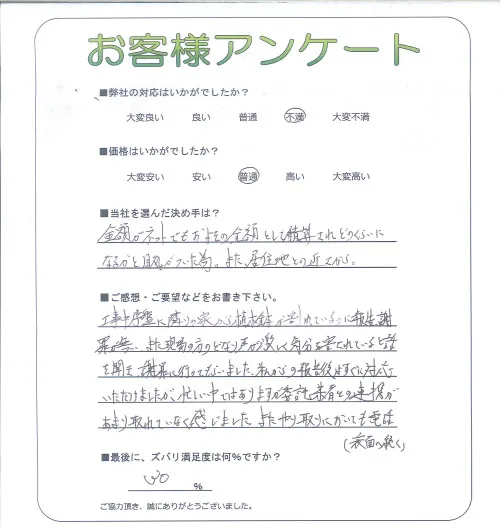 お客様アンケート
■弊社の対応はいかがでしたか?
大変良い 良い 普通 不満 大変不満
■価格はいかがでしたか?
大変安い 安い 普通 高い 大変高い
■当社を選んだ決め手は?
金額がネットでもおおよその金額として積算されどのくらいに
なるかと目処がついた為。また、居住地との近さから。
■ご感想・ご要望などをお書き下さい。
工事中序盤に隣りの家から植木鉢が割れているのに報告謝
罪が無い、また現場の方のどなり声が激しく気分を害されていると話
を聞き、謝罪に行ってもらいました。私からの報告後はすぐに対応
いただけましたが、忙しい中ではありますが委託業者との連携が
あまり取れていなく感じました。またやり取りにおいても電話
(裏面へ続く)
■最後に、ズバリ満足度は何%ですか?
%
ご協力頂き、誠にありがとうございました。